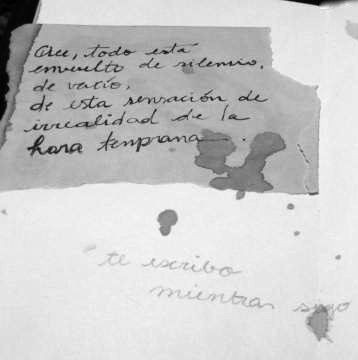 Cree, todo está
envuelto de silencio,
de vacío,
de esta sensación de
irrealidad de la
hora temprana.
te escribo
mientras sigo